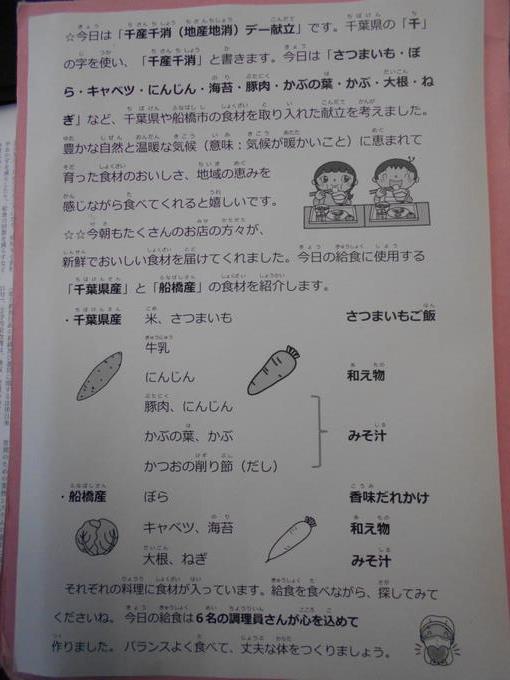 ☆今日は「千産千消（地産地消）デー献立」です。千葉県の「千」
の字を使い、「千産千消」と書きます。今日は「さつまいも・ぼ
ら・キャベツ・にんじん・海苔・豚肉・かぶの葉・かぶ・大根・ね
ぎ」など、千葉県や船橋市の食材を取り入れた献立を考えました。
豊かな自然と温暖な気候（意味：気候が暖かいこと）に恵まれて
育った食材のおいしさ、地域の恵みを
感じながら食べてくれると嬉しいです。
☆☆今朝もたくさんのお店の方々が、
新鮮でおいしい食材を届けてくれました。今日の給食に使用する
「千葉県産」と「船橋産」の食材を紹介します。
・千葉県産 米、さつまいも さつまいもご飯
牛乳
にんじん 和え物
豚肉、にんじん
かぶの葉、かぶ みそ汁
かつおの削り節（だし）
・船橋産 ぼら 香味だれかけ
キャベツ、海苔 和え物
大根、ねぎ みそ汁
それぞれの料理に食材が入っています。給食を食べながら、探してみて
くださいね。今日の給食は６名の調理員さんが心を込めて
作りました。バランスよく食べて、丈夫な体をつくりましょう。